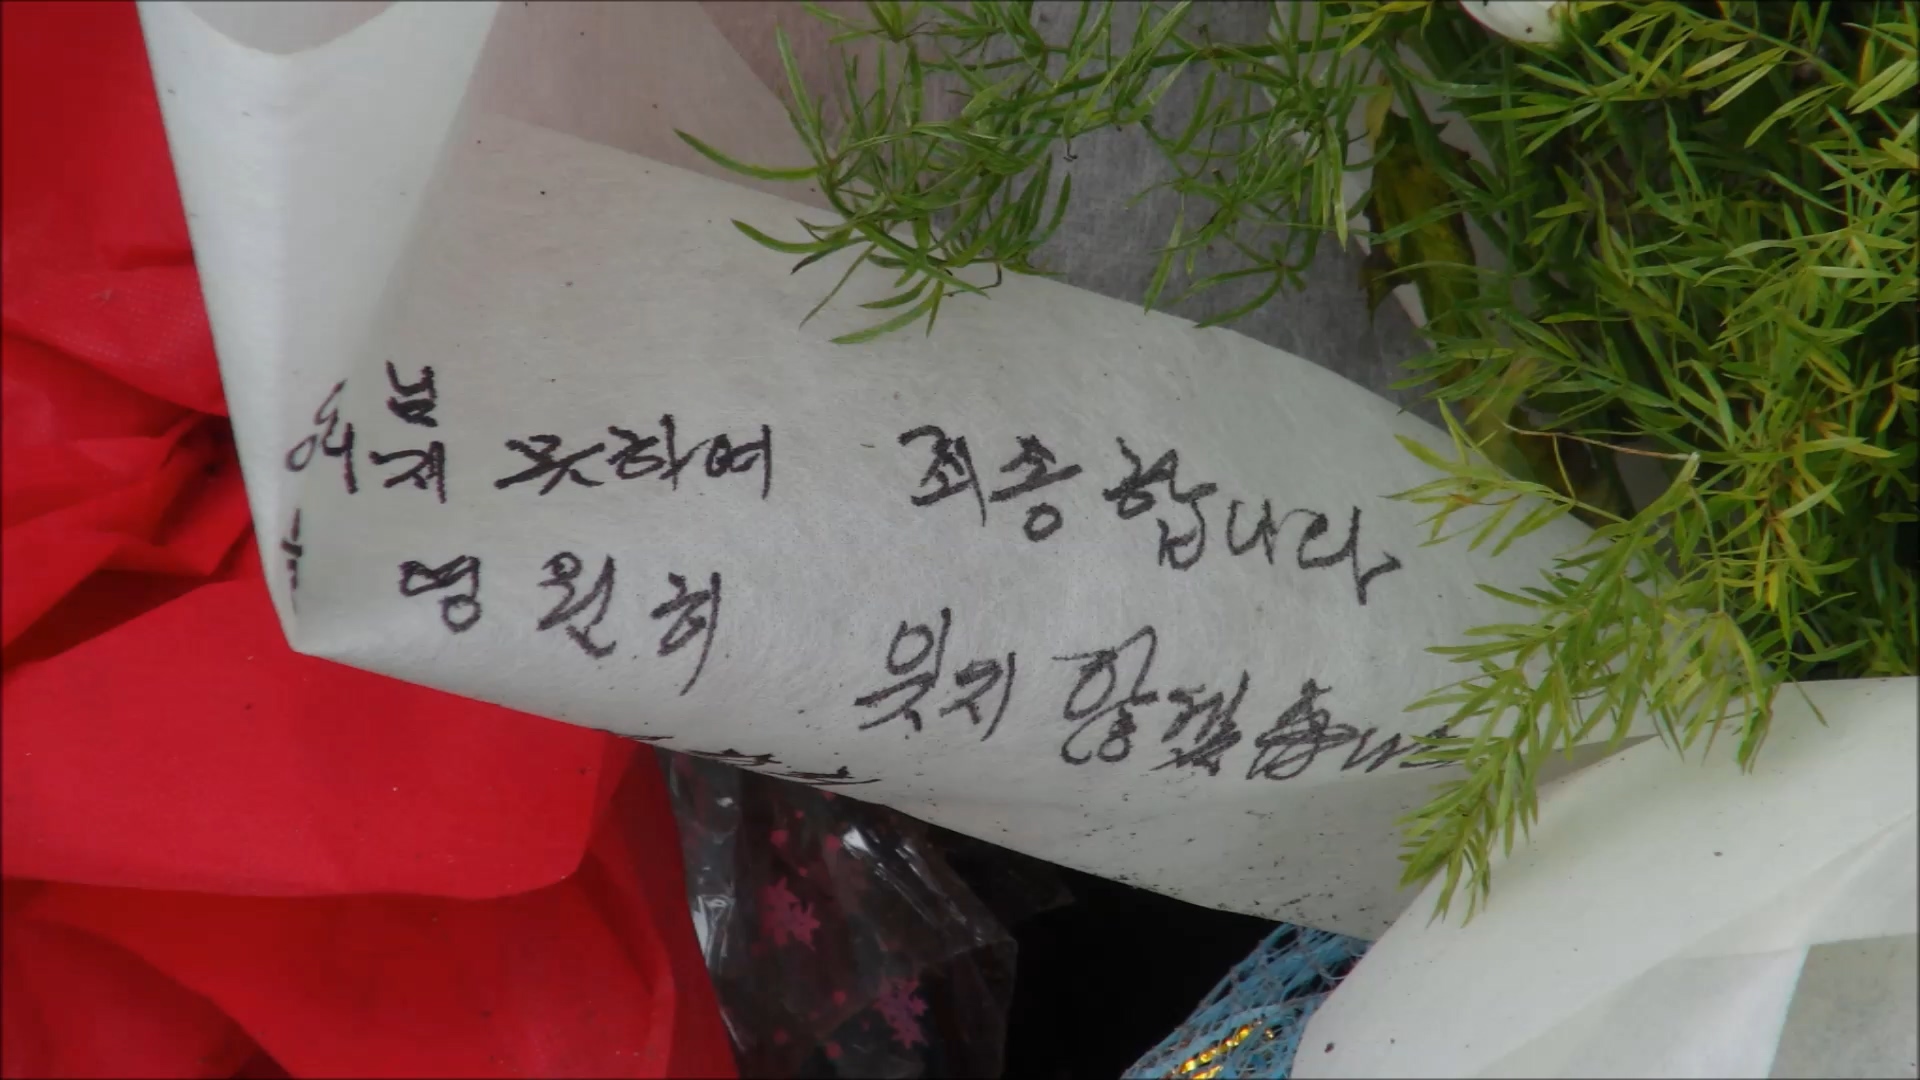 님
제 못하여 죄송합니다
영원히 잊지 않겠습니